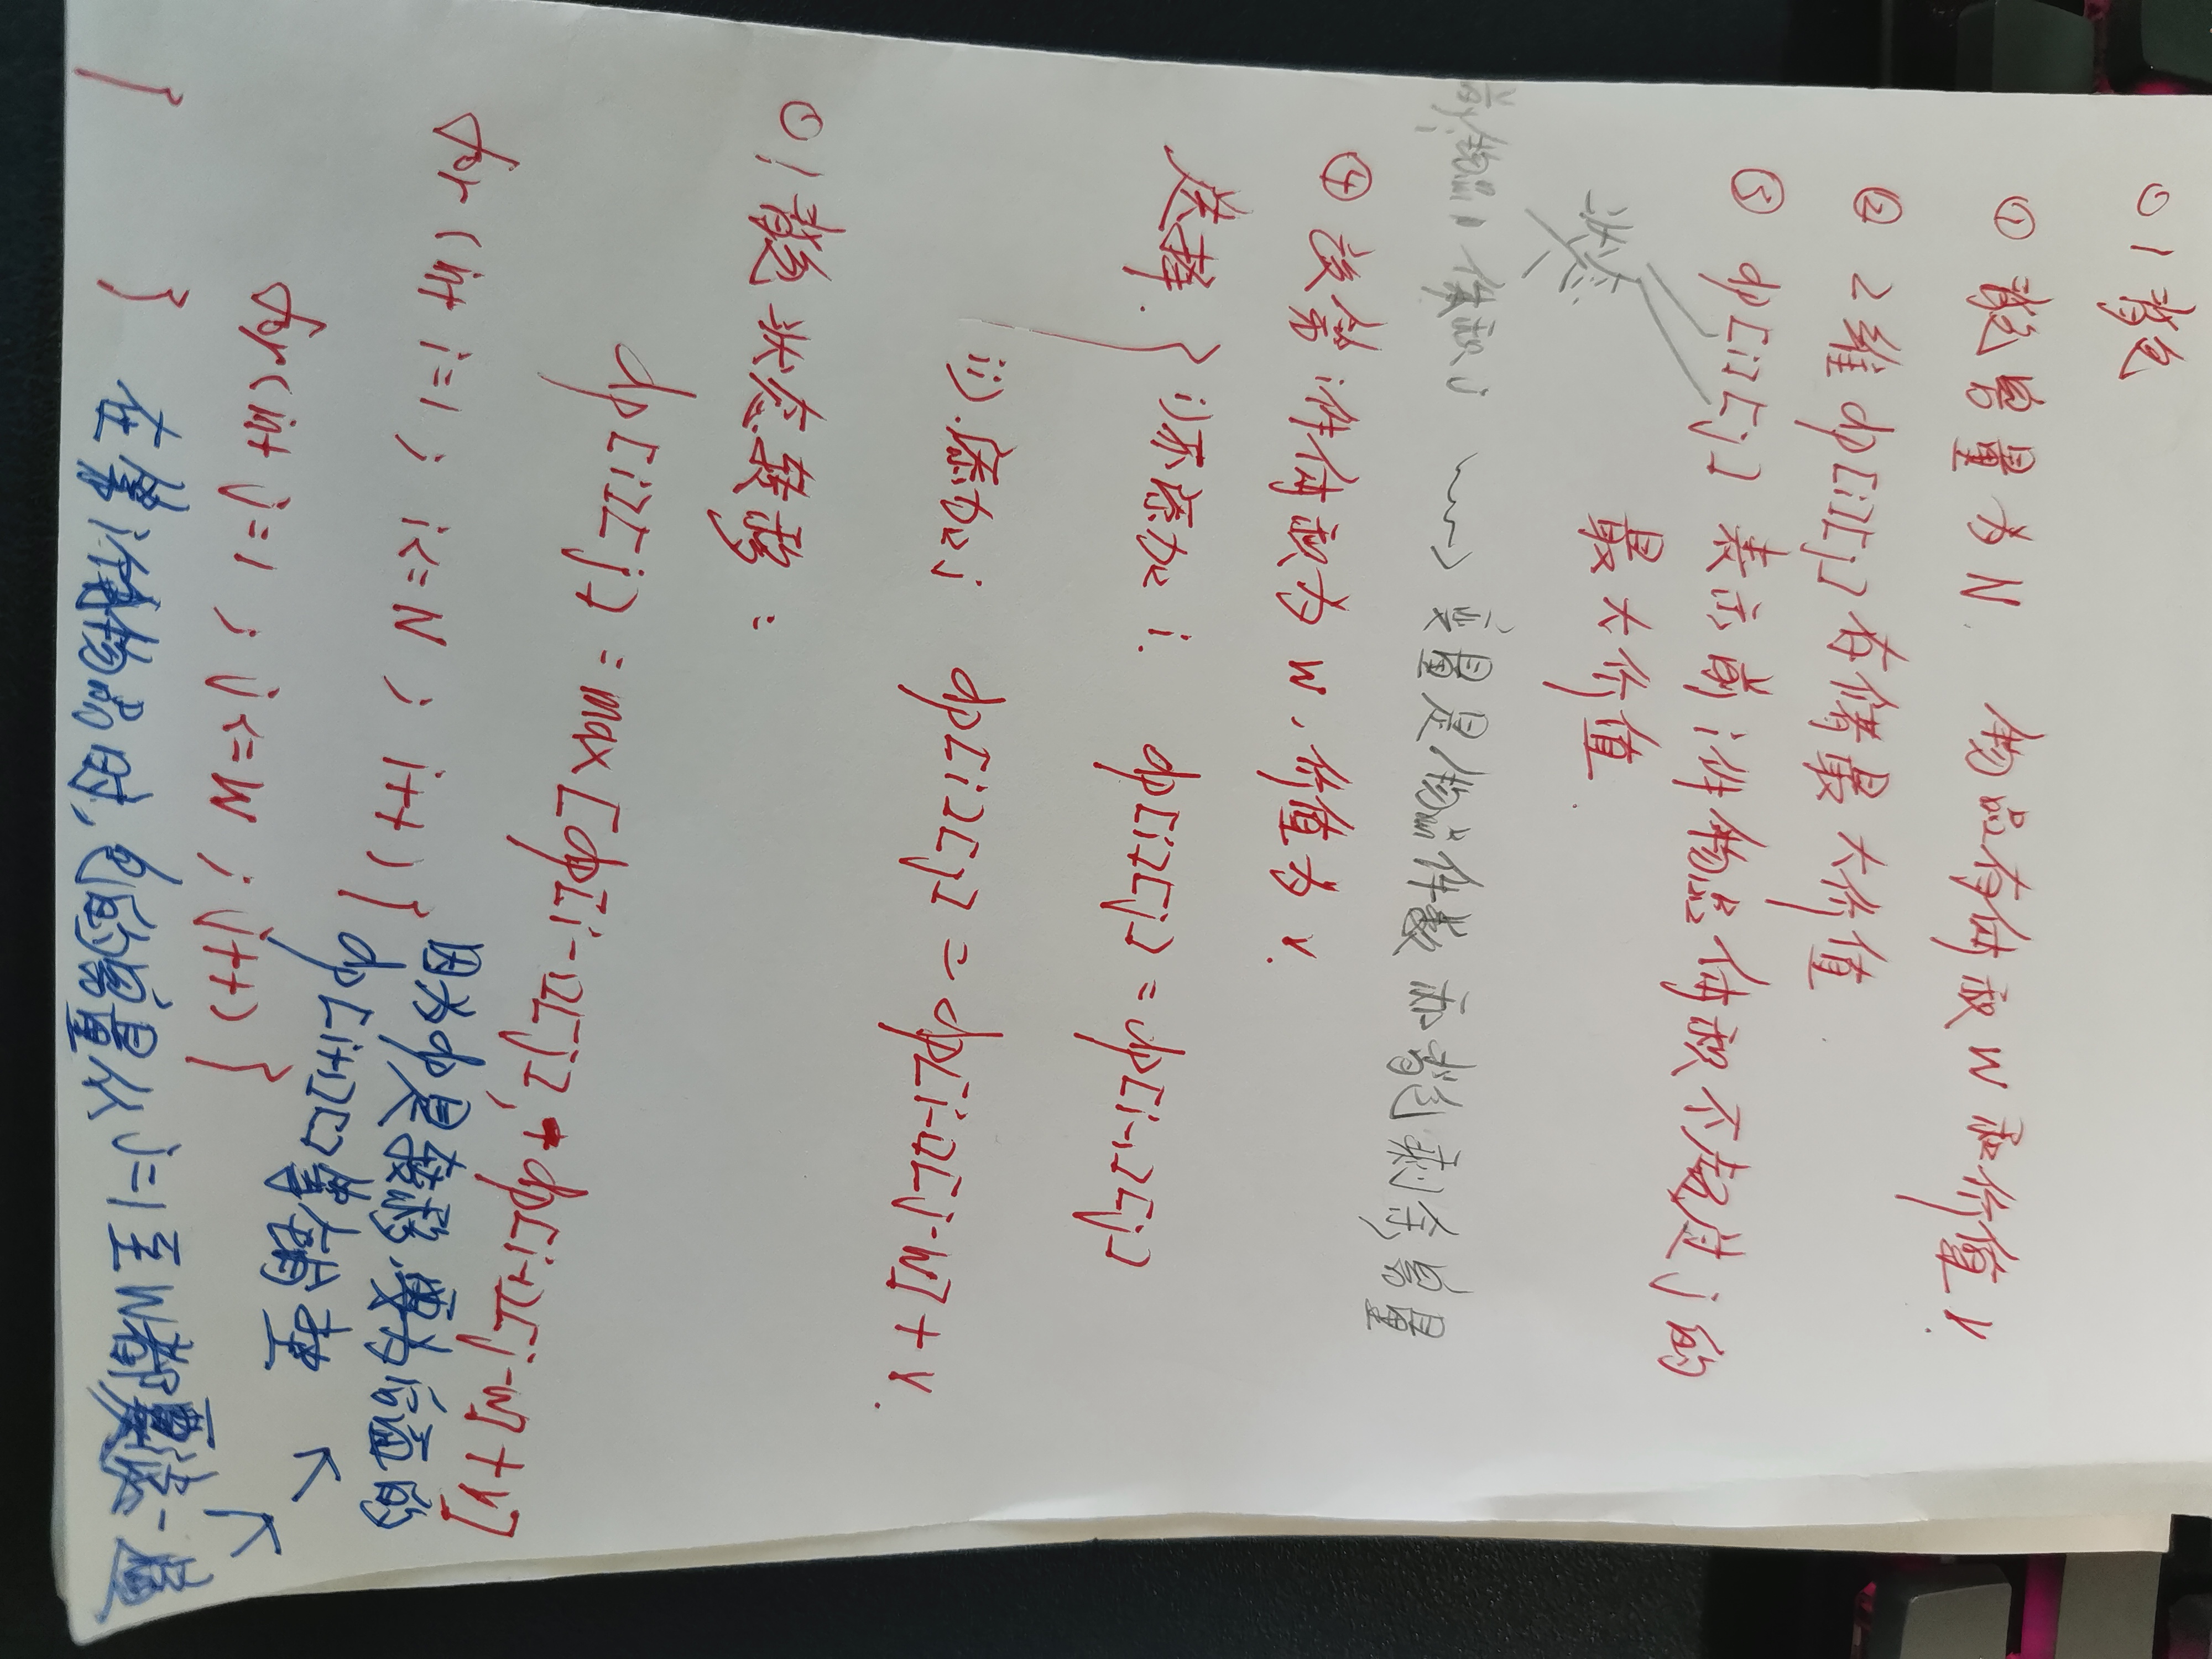 01背包
① 背包容量为N. 物品有体积W和价值V.
② 2维dp[i][j]存储最大价值.
③ dp[i][j] 表示前i件物品体积不超过j的
最大价值.
状态
前i物品 体积j → 变量是物品件数和背包剩余容量
④ 设第i件体积为w,价值为v.
选择. { i)不添加i. dp[i][j] = dp[i-1][j]
ii).添加j dp[i][j] = dp[i-1][j-w]+v.
01背包状态转移:
dp[i][j] = max[dp[i-1][j], dp[i-1][j-w]+v]
for(int i=1; i<=N; i++){
因为dp是转移,要为后面的
dp[i+1][]等铺垫
for(int j=1; j<=W; j++)}
} }
在第i件物品时,包的容量从j=1至W都要滤一遍